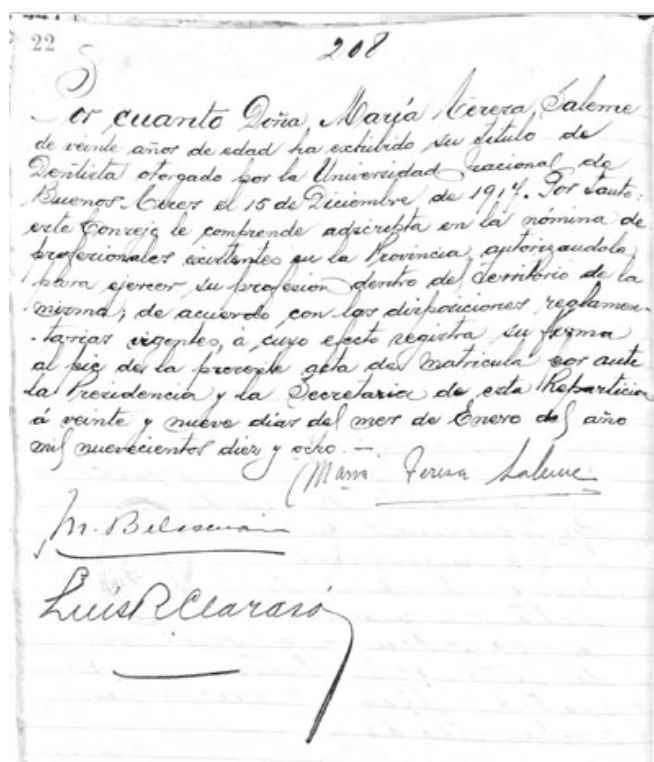 22
208
Por cuanto Doña María Teresa Saleme
de veinte años de edad ha exhibido su título de
Dentista otorgado por la Universidad nacional de
Buenos Aires el 15 de Diciembre de 1917. Por tanto:
este Consejo le comprende adscripta en la nómina de
profesionales existentes en la Provincia, autorizandola
para ejercer su profesion dentro del territorio de la
misma; de acuerdo con las disposiciones reglamen-
-tarias vigentes, á cuyo efecto registra su firma
al pie de la presente acta de matricula por ante
la Presidencia y la Secretaria de esta Reparticion
á veinte y nueve dias del mes de Enero del año
mil nuevecientos diez y ocho. —
Maria Teresa Saleme
M. Belascuain
Luis R Clarasó